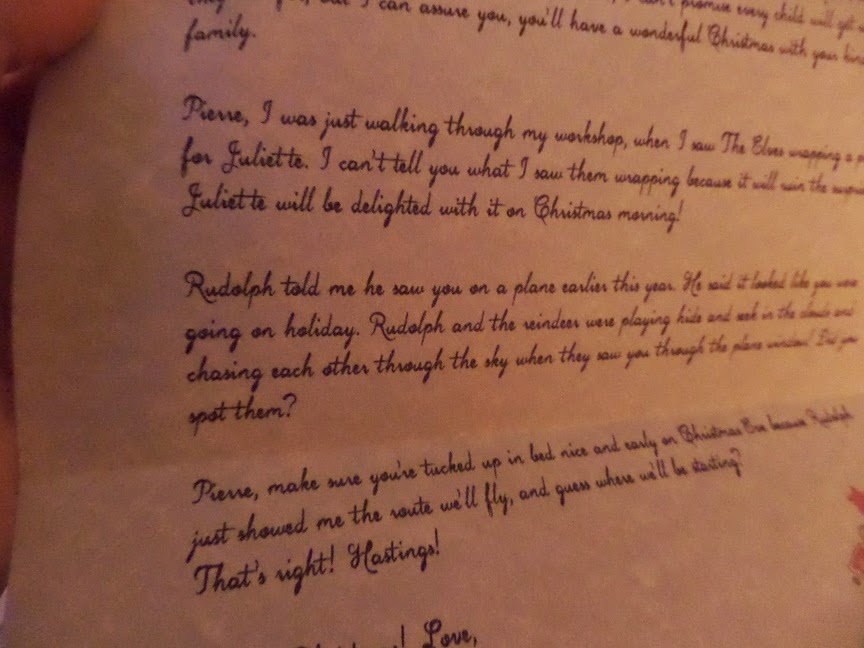 I can assure you, you'll have a wonderful Christmas with your kind
family.
Pierre, I was just walking through my workshop, when I saw The Elves wrapping a
for Juliette. I can't tell you what I saw them wrapping because it will ruin the
Juliette will be delighted with it on Christmas morning!
Rudolph told me he saw you on a plane earlier this year. He said it looked like you were
going on holiday. Rudolph and the reindeer were playing hide and seek in the clouds and
chasing each other through the sky when they saw you through the plane window! Did you
spot them?
Pierre, make sure you're tucked up in bed nice and early on Christmas Eve because Rudolph
just showed me the route we'll fly, and guess where we'll be starting?
That's right! Hastings!
Love,